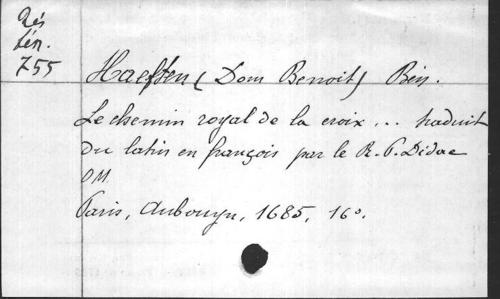 Rés
bén.
755
Haeften (Dom Benoit) Bén.
Le chemin royal de la croix ... traduit
du latin en françois par le R. P. Didac
O M.
Paris, Aubouyn, 1685, 16º.